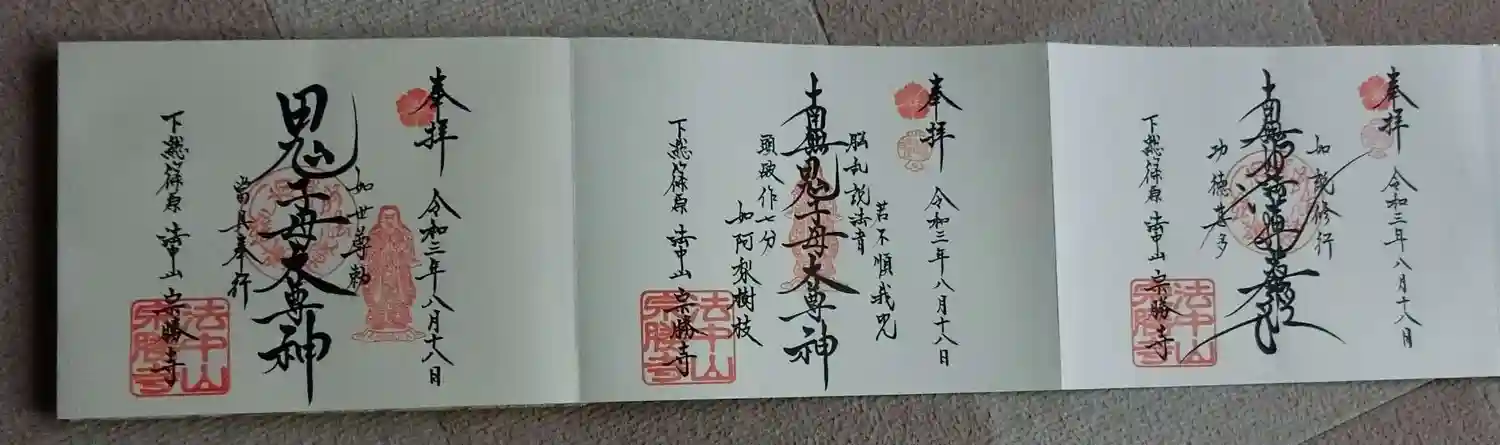 奉拝 令和三年八月十八日
如説修行
功徳甚多
下総篠原 法中山 宗勝寺
法中山
宗勝寺
奉拝 令和三年八月十八日
若不順我咒
悩乱説法者
南無鬼子母大尊神
頭破作七分
如阿梨樹枝
下総篠原 法中山 宗勝寺
法中山
宗勝寺
奉拝 令和三年八月十八日
如世尊勅
鬼子母大尊神
當具奉行
下総篠原 法中山 宗勝寺
法中山
宗勝寺